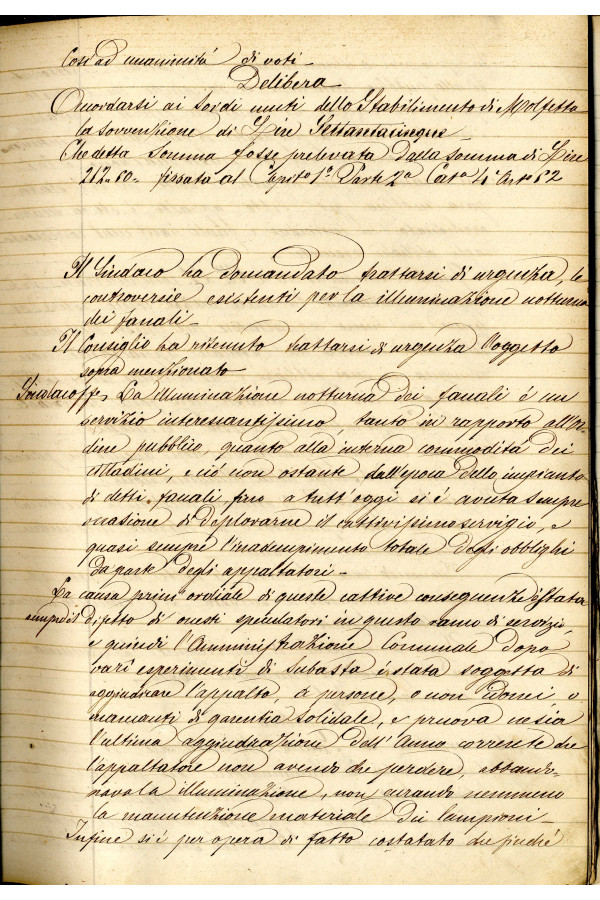 Così ad unanimità di voti
Delibera
Accordarsi ai sordi muti dello Stabilimento di Molfetta
la sovvenzione di Lire Settantacinque
Che detta somma fosse prelevata dalla somma di Lire
212.60 fissata al Capito 1° Parte 2a Cata 4a Arto 62
Il Sindaco ha domandato trattarsi di urgenza, le
controversie esistenti per la illuminazione notturna
dei fanali
Il Consiglio ha ritenuto trattarsi di urgenza l'oggetto
sopra menzionato
Sindaco ff. La illuminazione notturna dei fanali è un
servizio interessantissimo, tanto in rapporto all'or-
dine pubblico, quanto alla interna commodità dei
cittadini, e ciò non ostante dall'epoca dello impianto
di detti fanali fino a tutt'oggi si è avuta sempre
occasione di deplorarne il cattivissimo servigio, e
quasi sempre l'inadempimento totale degli obblighi
da parte degli appaltatori
La causa primordiale di queste cattive conseguenze è stata
sempre il difetto di onesti speculatori in questo ramo di servizio,
e quindi l'Amministrazione Comunale dopo
varî esperimenti di subasta è stata soggetta di
aggiudicare l'appalto a persone, o non idonei o
mancanti di garentia solidale, e pruova ne sia
l'ultima aggiudicazione dell'Anno corrente che
l'appaltatore non avendo che perdere, abbando-
nava la illuminazione, non curando nemmeno
la manutenzione materiale dei lampioni
Infine si è per opera di fatto costatato che finché